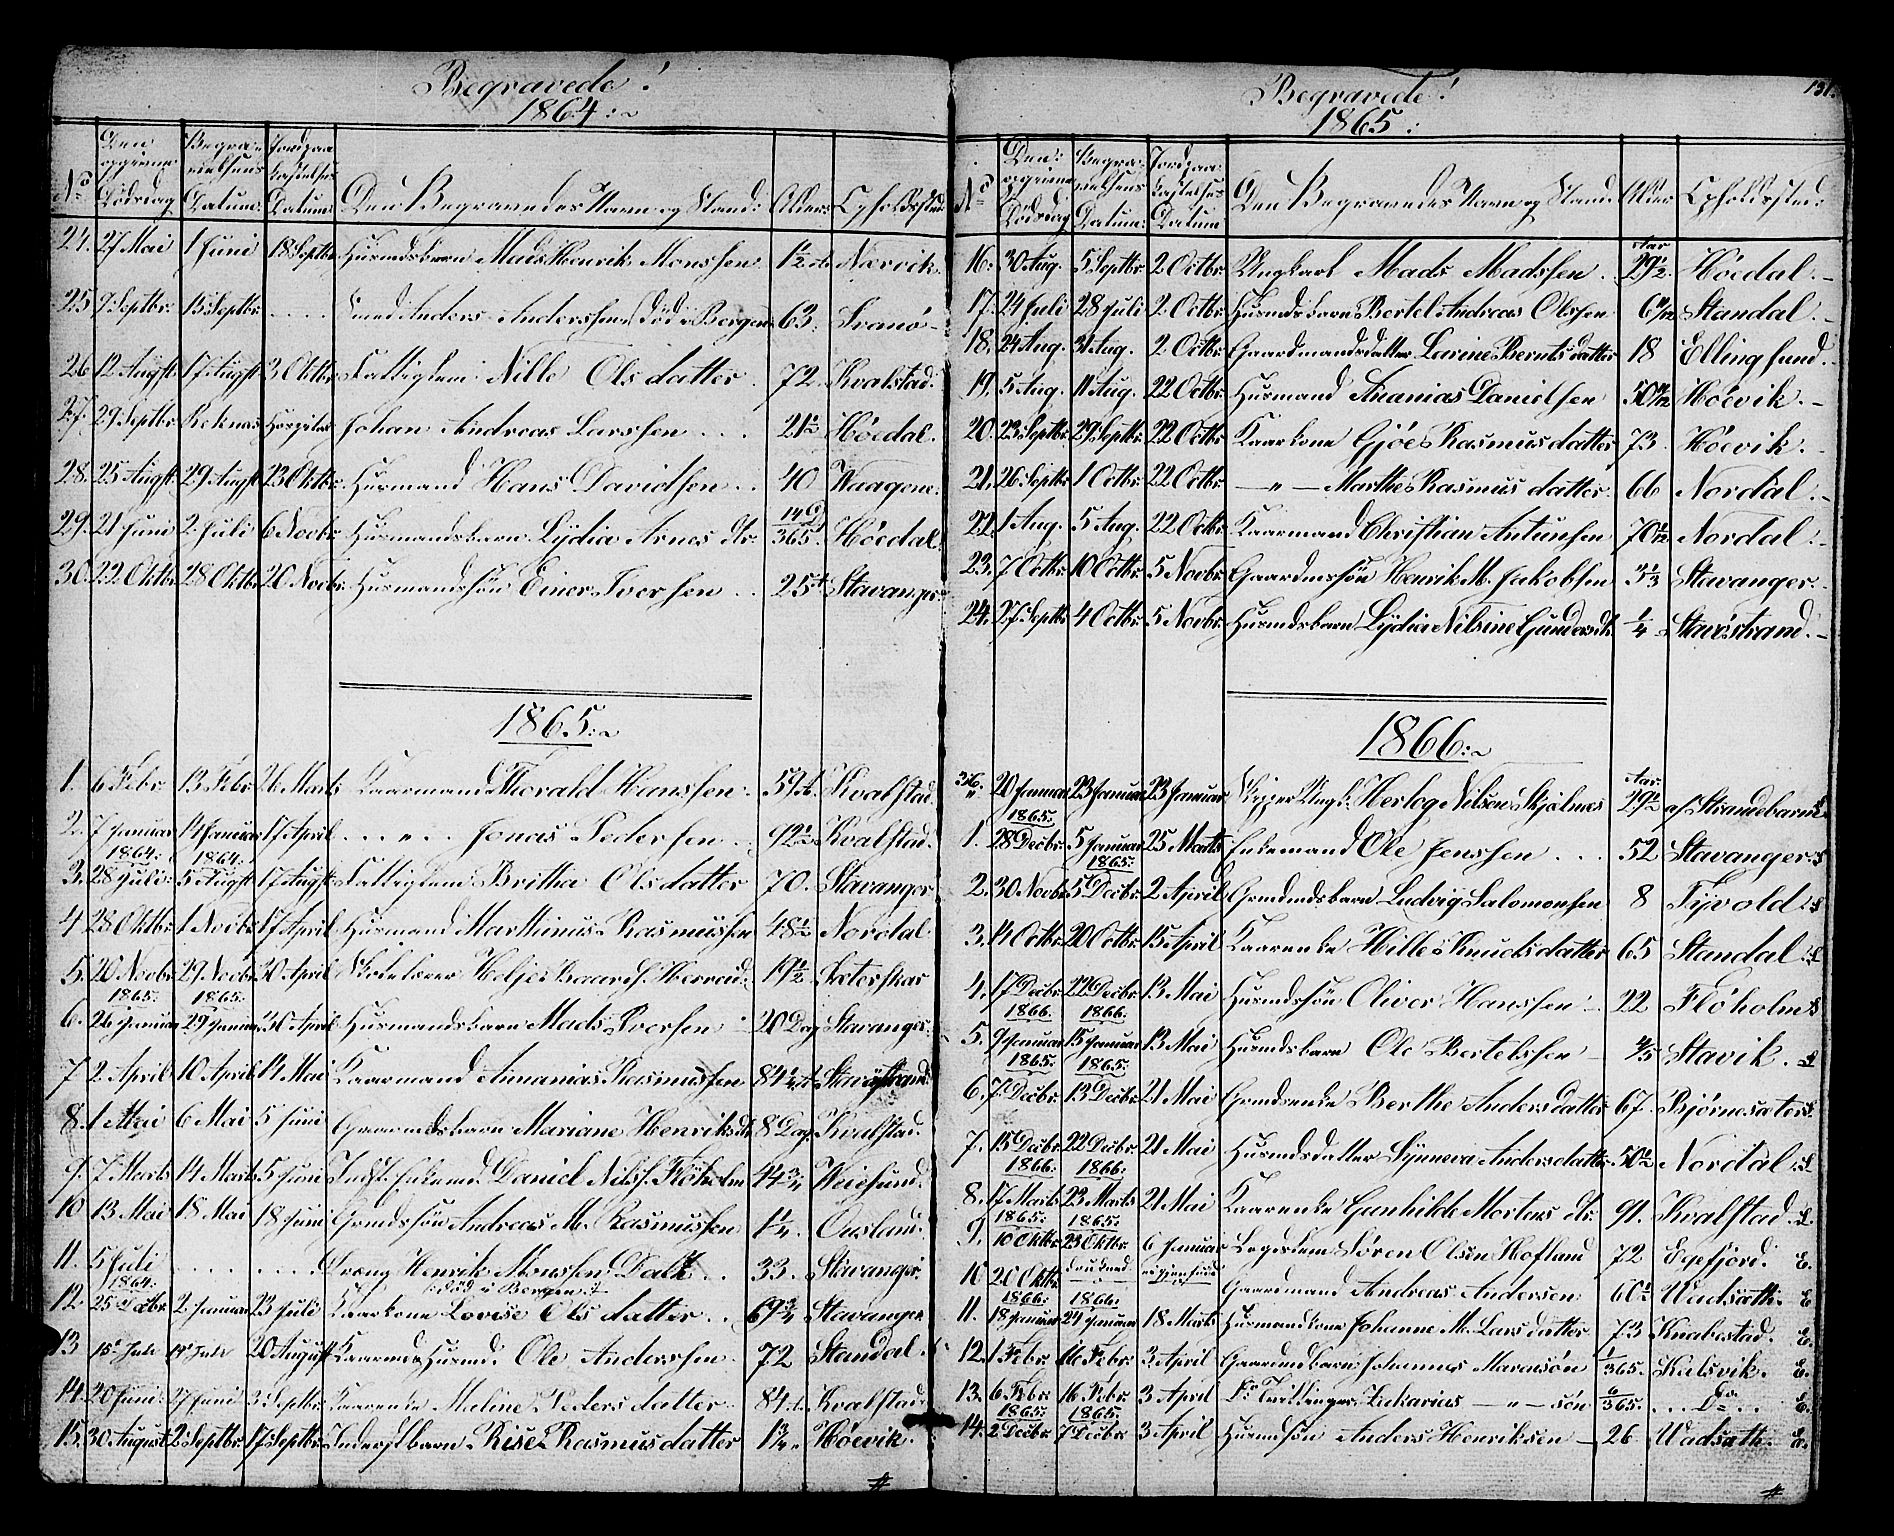 Begravede!
1864:
No Den: Dødsdag Begravelsens Datum: Jordpaakastelses Datum: Den Begravedes Navn og Stand: Alder: Opholdssted:
24. 27 Mai 1 Juni 18 Septbr. Husmdsbarn Mads Henrik Monssen 1½ Nærvik.
25 9 Septbr. 15 Septbr. Anders Anderssen død i Bergen 63. Svanø
26 12 Augst. 17 Augst 3 Oktbr. Fattiglem Nille Olsdatter 72. Kvalstad.
27. 29 Septbr. Reknæs Hospital Johan Andreas Larssen 21½ Høedal.
28. 25 Augst. 29 Augst 23 Oktbr. Husmand Hans Davidssen 40 Waagene.
29. 21 Juni 2 Juli 6 Novbr. Husmandsbarn Lydia Arnes dtr. 14/365. Høedal.
30. 22. Oktbr. 28 Oktbr. 20 Novbr. Husmandssøn Einer Iversen 25 Stavanger
1865:
1. 6 Febr. 13 Febr. 26 Marts Kaarmand Thorald Hanssen 59 Kvalstad.
2. 7 Januar 14 Januar 17 April " Jonas Pedersen 92½ Kvalstad.
1864. 1864.
3. 28 Juli 5 Augst 17 Augst Fattiglem Britha Olsdatter 70. Stavanger
4 28 Oktbr. 1 Novbr. 17 April Husmand Marthinus Rasmussen 48½ Nordal
5. 20 Novbr. 29 Novbr. 30 April Skolelærer Heljes 19½ Sæterskar
1865. 1865.
6. 26 Januar 29 Januar 30 April Husmandsbarn Mads Iversen 20 Dag Stavanger
7 2 April 10 April 14 Mai Kaarmand Annanias Rasmussen 84½ Stavøstrand.
8. 1 Mai 6 Mai 5 Juni Gaarmdsbarn Mariane Henriksdt. 8 Dag. Kvalstad.
9. 7 Marts 14 Marts 5 Juni Indst. Enkemd. Daniel Nilss. Fløholm 44¾ Weiesund.
10 13 Mai 18 Mai 18 Juni Grmdssøn Andreas M. Rasmussen 1¼. Ousland.
11. 5 Juli Dræng Henrik Monssen Dale 33. Stavanger.
1864. død i Bergen
12. 25 Decbr. 2 Januar 23 Juli Kaarkone Lovise Olsdatter 69¾ Stavanger
13 15 Juli 19 Juli 20 August Kaarmd Husmd. Ole Anderssen 72 Standal.
14. 20 Juni 27 Juni 3 Septbr. Kaarenke Maline Peders datter 84 Kvalstad
15. 30 August 2 Septbr. 17 Septbr. Inderstbarn Risel Rasmusdatter 1¼ Høevik.
#
131.
Begravede!
1865:
No Den: Dødsdag Begravelsens Datum: Jordpaakastelses Datum Den Begravedes Navn og Stand: Alder Opholdssted:
Aar
16. 30 Aug. 5 Septbr. 2. Octbr. Ungkarl Mads Madssen 29½. Høedal.
17. 24 Juli 28 Juli 2. Octbr. Husmdsbarn Bertel Andreas Olssen 6 Standal.
18. 24 Aug. 31 Aug. 2 Octbr. Gaardmandsdatter Lovine Berntsdatter 18 Ellingsund.
19. 5 Aug. 11 Aug. 22 Octbr. Husmand Ananias Danielsen 50 Høevik.
20. 23 Septbr. 29 Septbr. 22 Octbr. Kaarkone Gjøe Rasmusdatter 73. Høevik.
21. 26 Septbr. 1 Octbr. 22 Octbr. — " — Marthe Rasmusdatter 66 Nordal.
22 1 Aug. 5 Aug. 22 Octbr. Kaarmand Christian Antunsen 70½ Nordal
23. 7 Octbr. 10 Octbr. 5 Novbr. Gaardmssøn Henrik M. Jakobsen Stavanger.
24. 27 Septbr. 4 Octbr. 5 Novbr. Husmdsbarn Lydia Nilsine Gundersdt. ¼ Stavøstrand.
1866:
Aar.
20 Januar 23 Januar 23 Januar Skipper Ungk. Herlog Nilsen Skjølnæs 29½ af Strandebarm
1865.
1. 28 Decbr. 5 Januar 25 Marts Enkemand Ole Jenssen 52 Stavanger
1865.
2. 30 Novbr. 5 Decbr. 2 April Grmdmdsbarn Ludvig Salomonsen 8 Tyvold
3. 14 Octbr. 20 Octbr. 15 April Kaarenke Hille Knudsdatter 65 Standal
4. 17 Decbr. 22 Decbr. 13 Mai Husmdssøn Oliver Hanssen 22 Fløholm
1866. 1866.
5. 9 Januar 15 Januar 13 Mai Husmdsbarn Ole Bertelssen Stavik.
1865. 1865.
6. 7. Decbr. 13 Decbr. 21 Mai Grmdsenke Berthe Andersdatter 67. Bjørnesæter
7. 15 Decbr. 22 Decbr. 21 Mai Husmdsdatter Synneva Andersdatter 50½ Nordal
1866. 1866.
8. 17 Marts 23 Marts 21 Mai Kaarenke Gunhilde Mortens dtr. 91. Kvalstad.
1865. 1865.
9. 10 Oktbr. 23 Oktbr. 6 Januar Legdslem Søren Olsen Hofland 72 Egefjord. E.
10 20 Oktbr. drukned Gaardmand Andreas Andersen 60½ Vadsæth. E
1866. 1866.
11. 18 Januar 24 Januar 18 Marts Husmandkone Johanne M. Larsdatter 73 Knabestad. E.
12. 1 Febr. 16 Febr. 3 April Gaarmdbarn Johannes 1/365. Kulsvik. E.
13. 6 Febr. 16 Febr. 3 April Do Tvillinger Zakarius — " — søn 6/365. Do E.
1865. 1865.
14. 2 Decbr. 7 Decbr. 3 April Husmdsøn Anders Henriksen 26 Vadsæth. E.
#